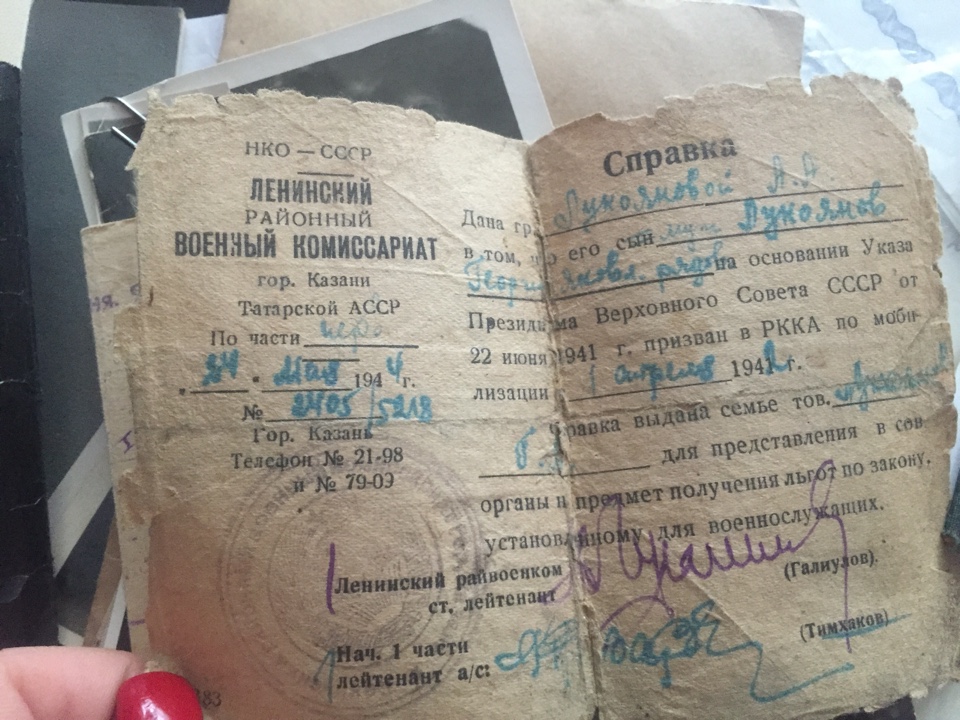 НКО — СССР
ЛЕНИНСКИЙ
РАЙОННЫЙ
ВОЕННЫЙ КОМИССАРИАТ
гор. Казани
Татарской АССР
По части
„24" мая 1944 г.
№ 2405/5218
Гор. Казань
Телефон № 21-98
и № 79-09
Справка
Дана гр. Лукояновой А. А.
в том, что его сын муж Лукоянов
Георгий Яковл. рядов на основании Указа
Президиума Верховного Совета СССР от
22 июня 1941 г. призван в РККА по моби-
лизации 1 апреля 1942 г.
Справка выдана семье тов.
для представления в сов
органы и предмет получения льгот по закону,
установленному для военнослужащих.
Ленинский райвоенком
ст. лейтенант (Галиулов).
Нач. 1 части
лейтенант а/с: (Тимхаков)
83